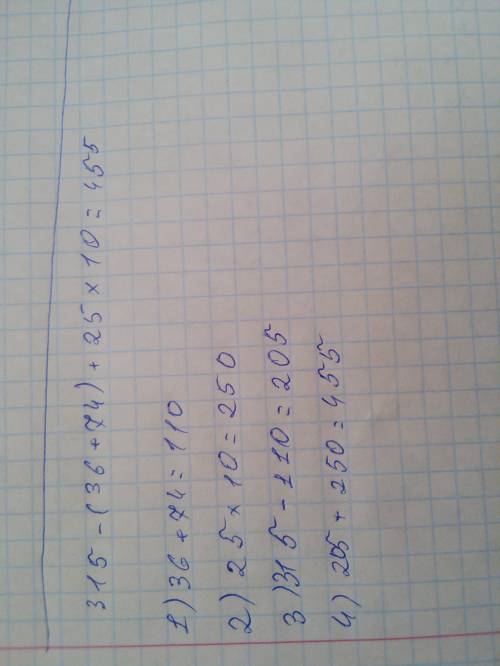 315 - (36 + 74) + 25 × 10 = 455
1) 36 + 74 = 110
2) 25 × 10 = 250
3) 315 - 110 = 205
4) 205 + 250 = 455